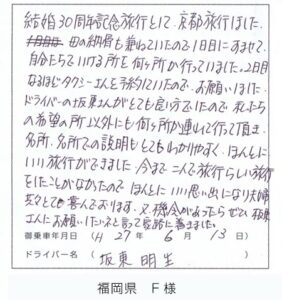 結婚30周年記念旅行として、京都旅行しました。
母の納骨も兼ねていたので1日目にすませて、
自分たちでいける所を何ヶ所か行っていました。2日目
なるほどタクシーさんを予約していたので、お願いしました。
ドライバーの坂東さんがとても良い方でしたので、私たち
の希望の所以外にも何ヶ所か連れて行って頂き
名所、名所での説明もとてもわかりやすく、ほんとに
いい旅行ができました。今まで二人で旅行らしい旅行
をしたことがなかったので ほんとに いい思い出になり夫婦
共々とても喜んでおります。又、機会があったらぜひ、坂東
さんにお願いしたいネと言って家路に着きました。
御乗車年月日 (H 27年 6月 13日)
ドライバー名 ( 坂東 明生 )
福岡県 F様